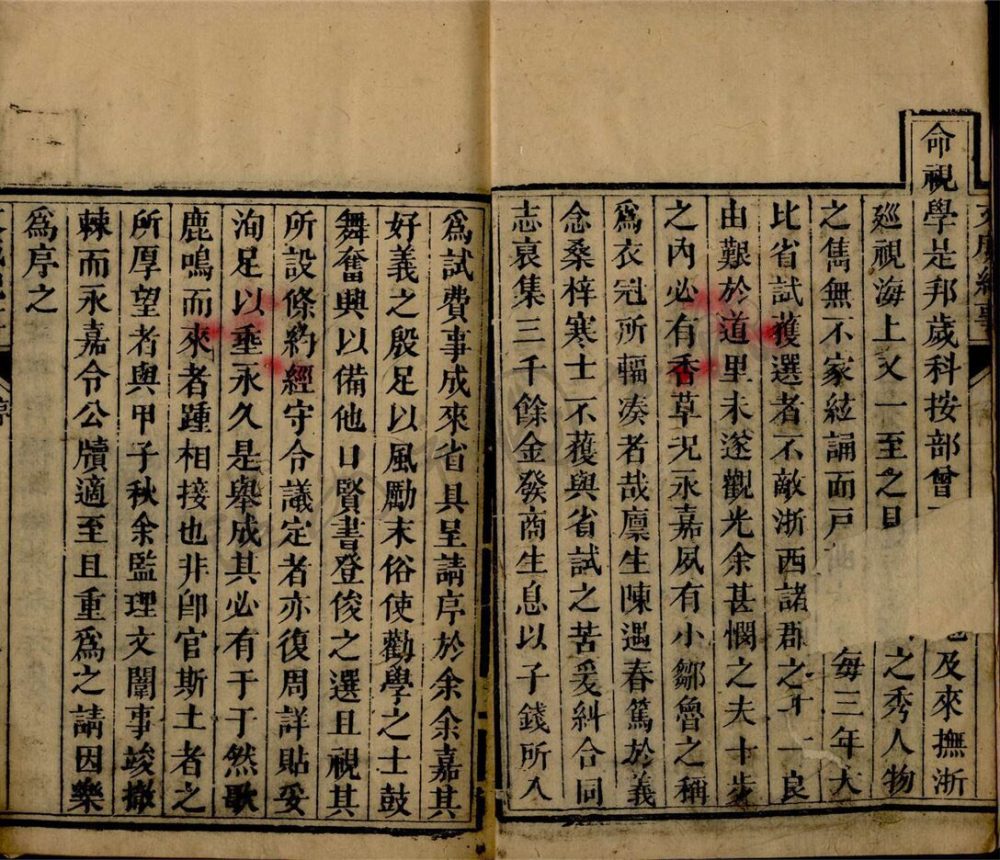 命視學是邦歲科按部曾及來撫浙
廵視海上又一至之秀人物
之雋無不家絃誦而戸每三年大
比省試獲選者不敵浙西諸郡之十一良
由艱於道里未遂觀光余甚憫之夫十步
之內必有香草况永嘉夙有小鄒魯之稱
爲衣冠所輻凑者哉廩生陳遇春篤於義
念桑梓寒士不獲與省試之苦爰糾合同
志裒集三千餘金發商生息以子錢所入
爲試費事成來省具呈請序於余余嘉其
好義之殷足以風勵末俗使勸學之士鼓
舞奮興以備他日賢書登俊之選且視其
所設條約經守令議定者亦復周詳貼妥
洵足以垂永久是舉成其必有于于然歌
鹿鳴而來者踵相接也非卽官斯土者之
所厚望者與甲子秋余監理文闈事竣撤
棘而永嘉令公牘適至且重爲之請因樂
爲序之
序